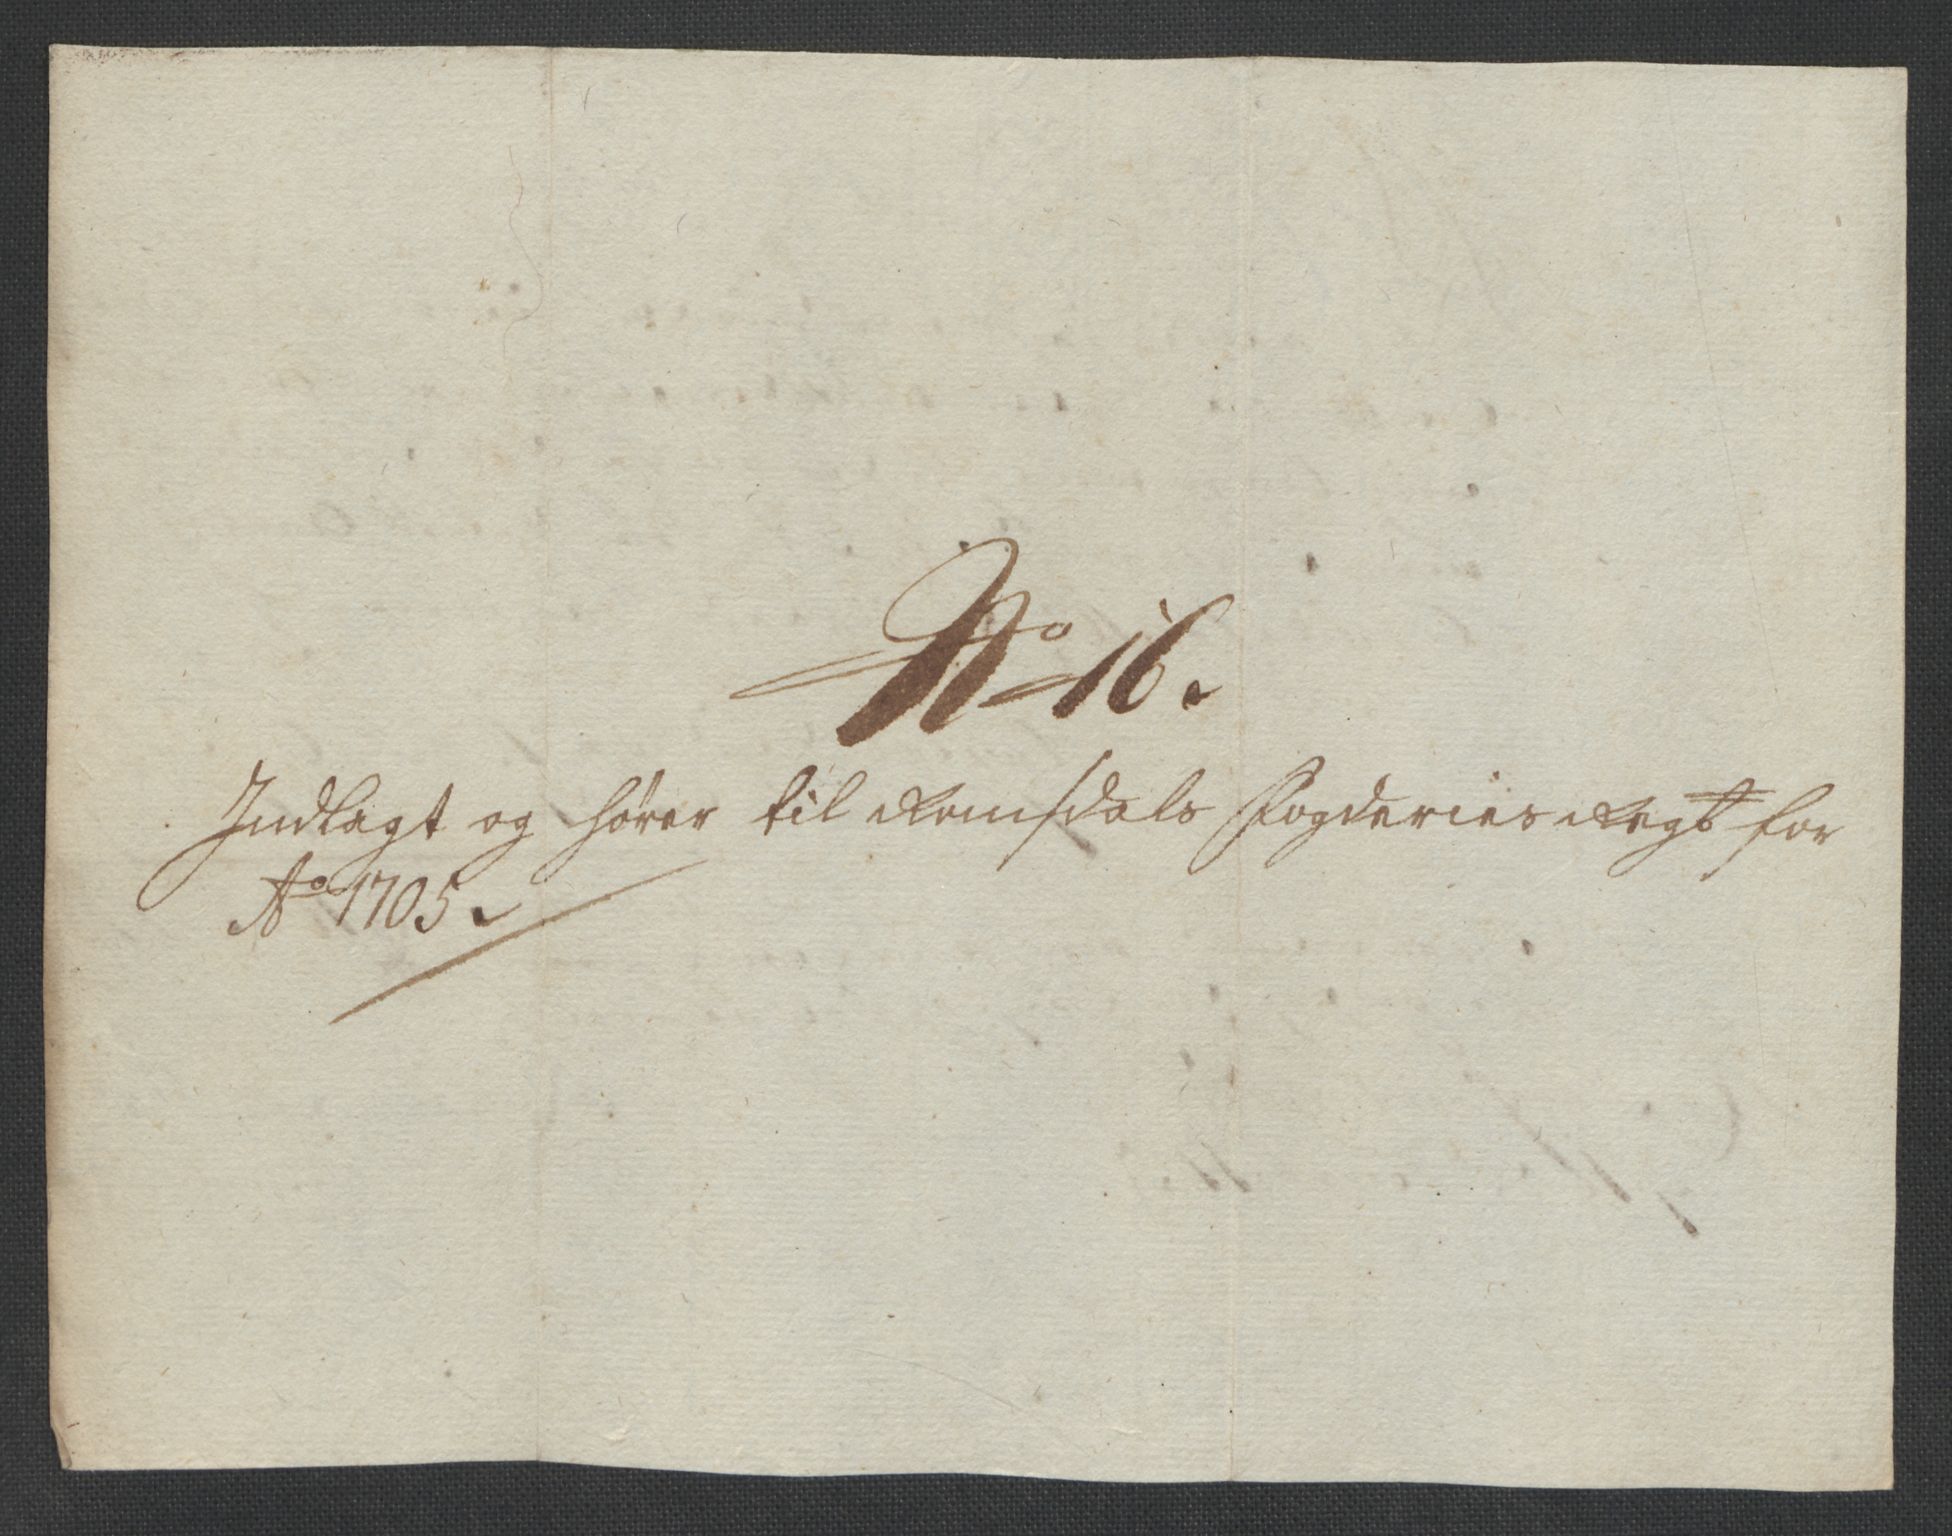 No 16.
Indlagt og hører til Romsdals Fogderies Regt for
Ao 1705.